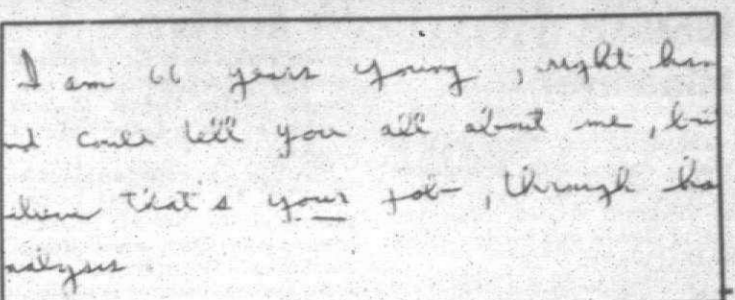 I am 66 years young, right han
nd could tell you all about me, bu
elieve that's your job, through ha
nalysis